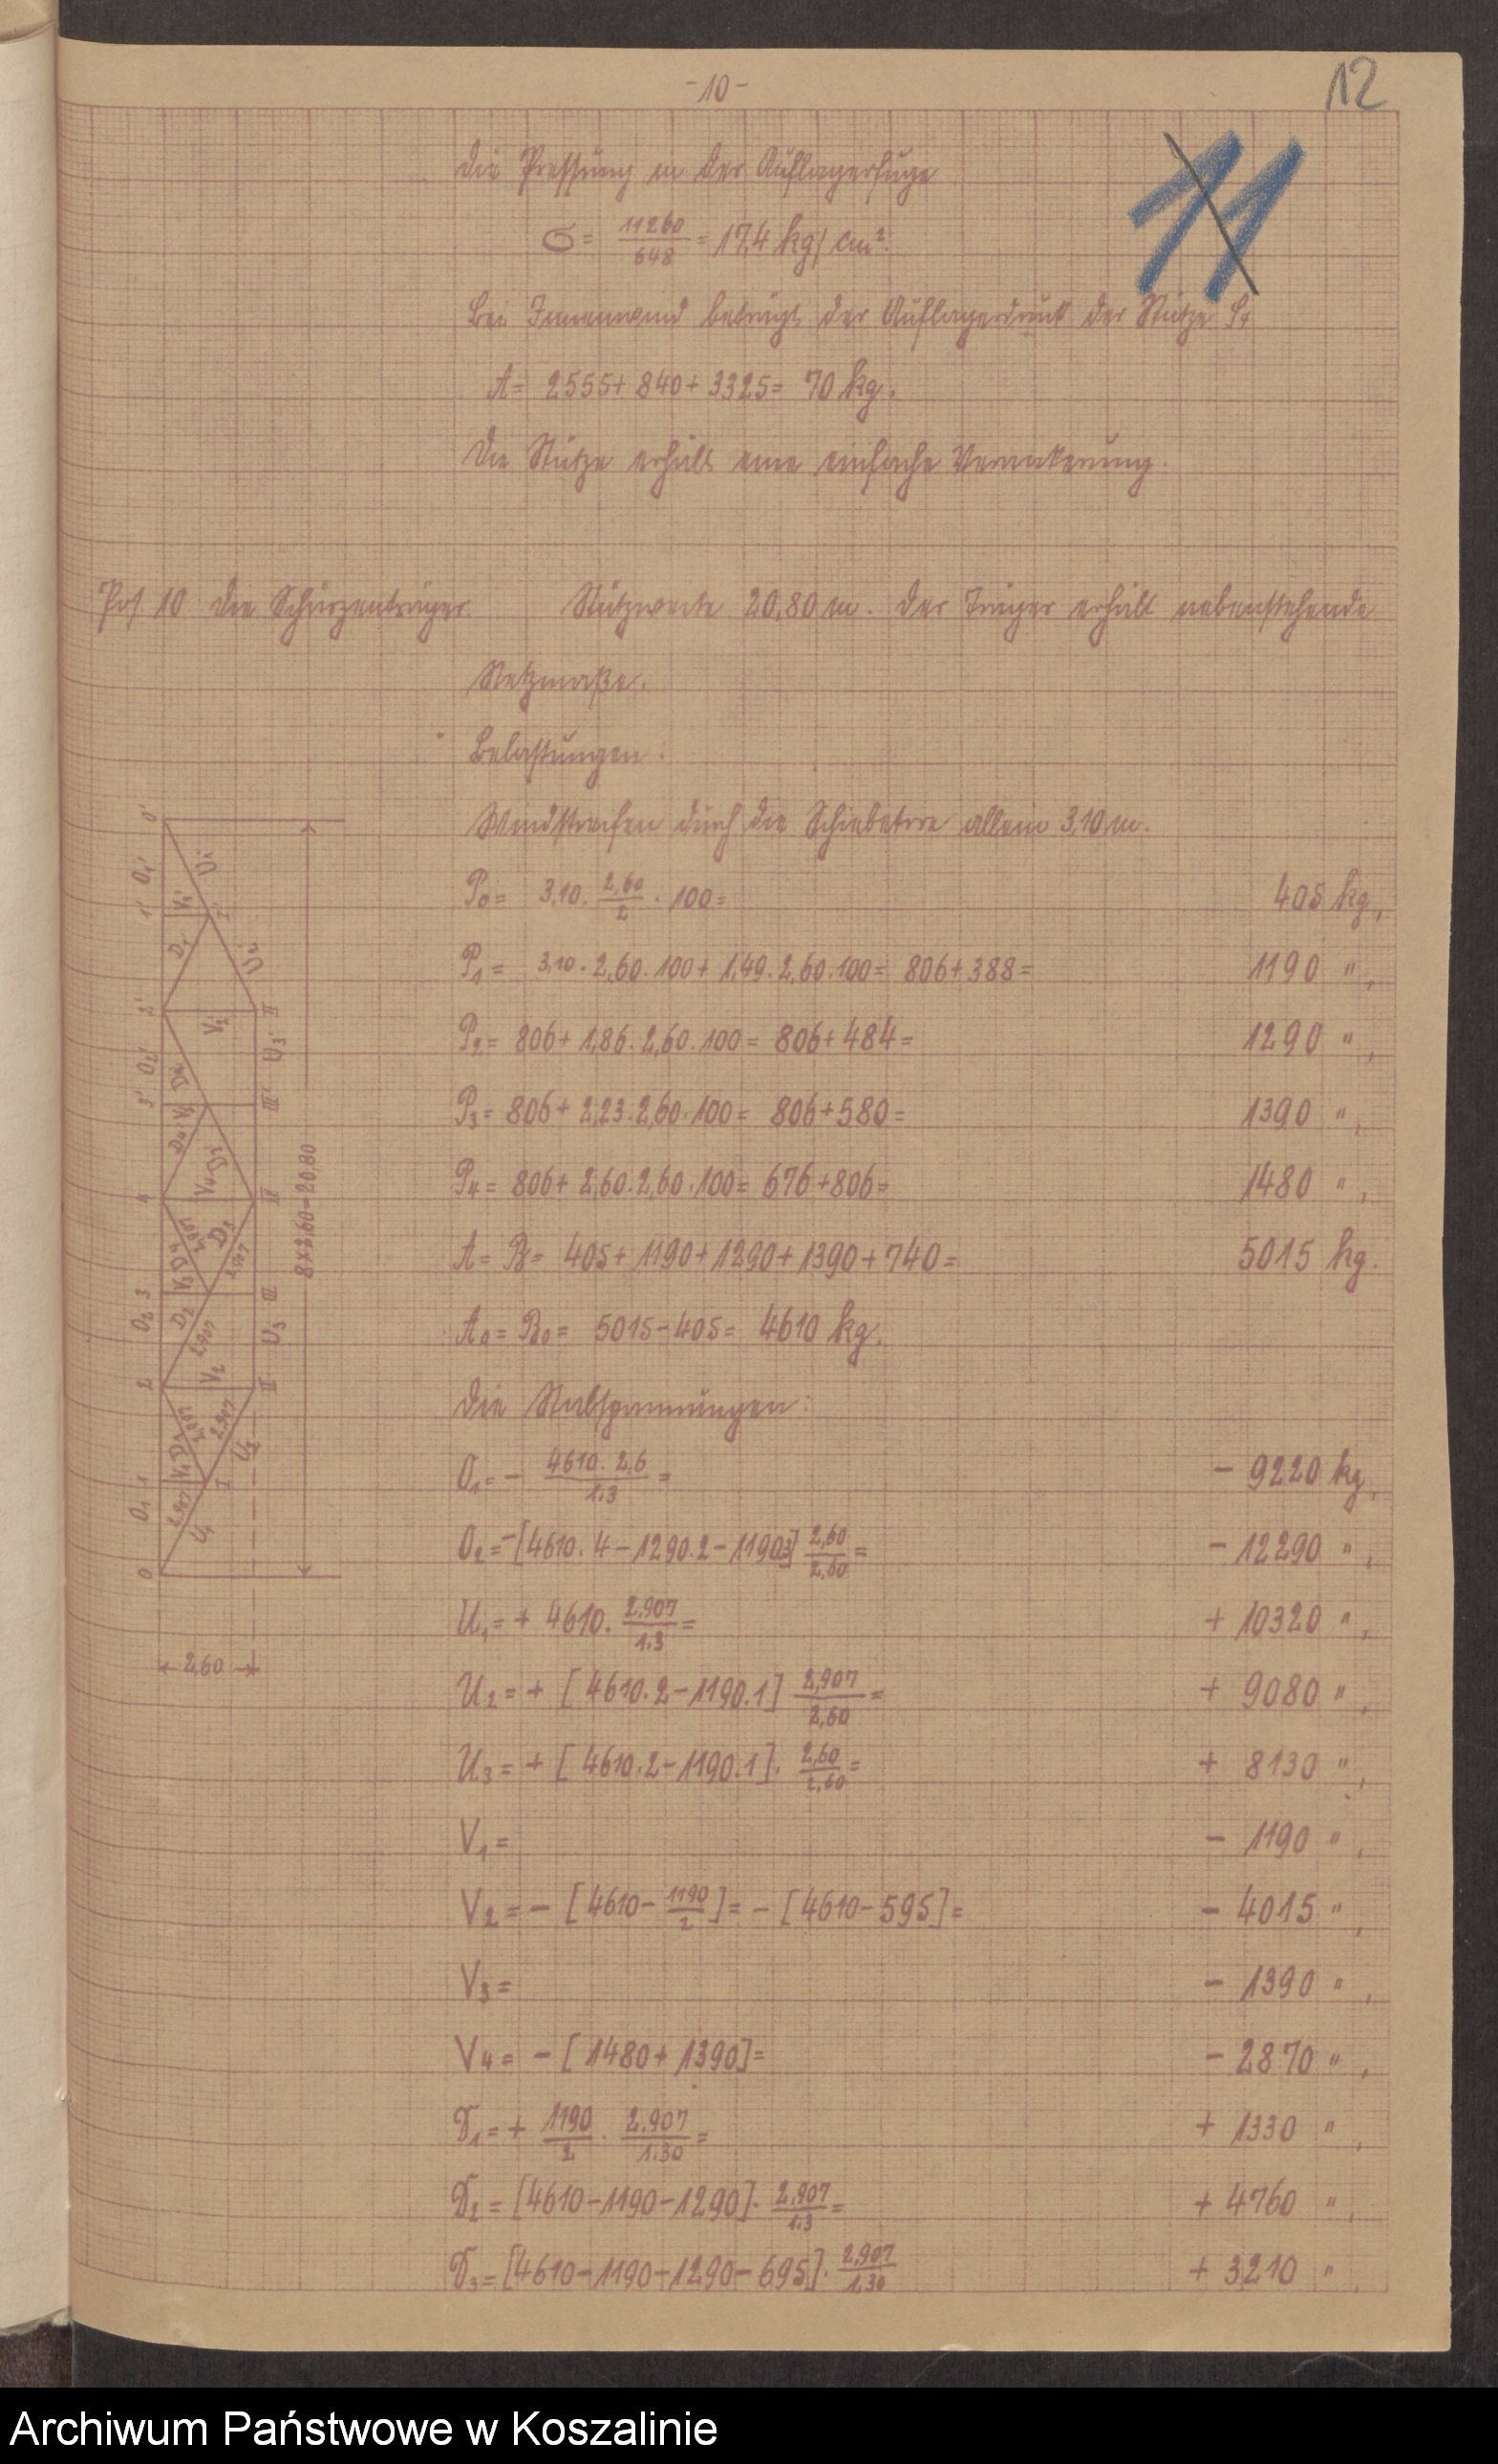 -10-
12
11
Die Pressung in der Auflagerfuge
σ = 11260/648 = 17,4 kg/cm².
Bei Innenwind beträgt der Auflagerdruck der Stütze S4
A = 2555 + 840 + 3325 = 70 kg.
Die Stütze erhält eine einfache Verankerung.
Pos 10 Die Schürzenträger. Stützweite 20,80 m. Der Träger erhält nebenstehende
Netzmaße.
Belastungen:
Windstreifen durch die Schiebetore allein 3,10 m.
P0 = 3,10 · 2,60/2 · 100 = 405 kg,
P1 = 3,10 · 2,60 · 100 + 1,49 · 2,60 · 100 = 806 + 388 = 1190 ",
P2 = 806 + 1,86 · 2,60 · 100 = 806 + 484 = 1290 ",
P3 = 806 + 2,23 · 2,60 · 100 = 806 + 580 = 1390 ",
P4 = 806 + 2,60 · 2,60 · 100 = 676 + 806 = 1480 ",
A = B = 405 + 1190 + 1290 + 1390 + 740 = 5015 kg.
A0 = B0 = 5015 - 405 = 4610 kg.
Die Stabspannungen:
O1 = - 4610 · 2,6/1.3 = - 9220 kg,
O2 = -[4610 · 4 - 1290 · 2 - 1190 · 3] 2,60/2,60 = - 12290 ",
U1 = + 4610 · 2,907/1.3 = + 10320 ",
U2 = + [4610 · 2 - 1190 · 1] 2,907/2,60 = + 9080 ",
U3 = + [4610 · 2 - 1190 · 1] · 2,60/2,60 = + 8130 ",
V1 = - 1190 ",
V2 = - [4610 - 1190/2] = - [4610 - 595] = - 4015 ",
V3 = - 1390 ",
V4 = - [1480 + 1390] = - 2870 ",
D1 = + 1190/2 · 2,907/1.30 = + 1330 ",
D2 = [4610 - 1190 - 1290] · 2,907/1.3 = + 4760 ",
D3 = [4610 - 1190 - 1290 - 695] · 2,907/1,30 + 3210 ",
0' O1' 1' 2' O2' 3' 4 3 O2 2 1 O1 0
U1' V1' I' D1' U2' V2' II' U3' D2' V3' III' D4' D3' V4 IV
D4 2,907 D3 2,907 V3 III D2 2,907 U3 V2 II
D1 2,907 V1 2,907 U2 I 2,907 U1
8 x 2,60 = 20,80
2,60
Archiwum Państwowe w Koszalinie